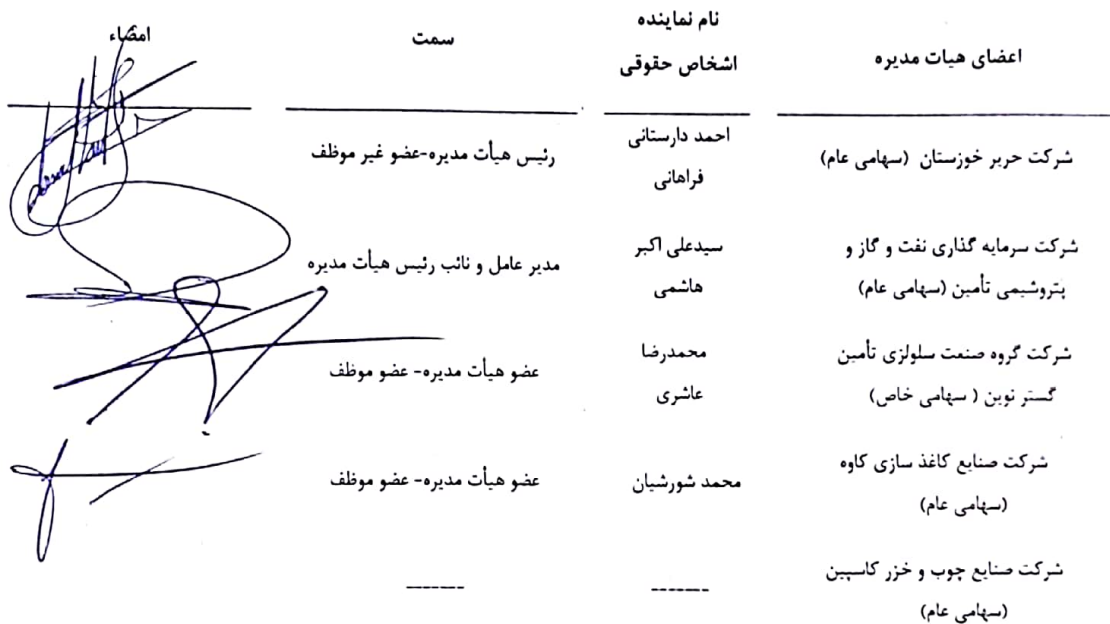 اعضای هیات مدیره
نام نماینده
اشخاص حقوقی
سمت
امضاء
شرکت حریر خوزستان (سهامی عام)
احمد دارستانی
فراهانی
رئیس هیأت مدیره-عضو غیر موظف
شرکت سرمایه گذاری نفت و گاز و
پتروشیمی تأمین (سهامی عام)
سیدعلی اکبر
هاشمی
مدیر عامل و نائب رئیس هیأت مدیره
شرکت گروه صنعت سلولزی تأمین
گستر نوین ( سهامی خاص)
محمدرضا
عاشری
عضو هیأت مدیره- عضو موظف
شرکت صنایع کاغذ سازی کاوه
(سهامی عام)
محمد شورشیان
عضو هیأت مدیره- عضو موظف
شرکت صنایع چوب و خزر کاسپین
(سهامی عام)
-------
-------